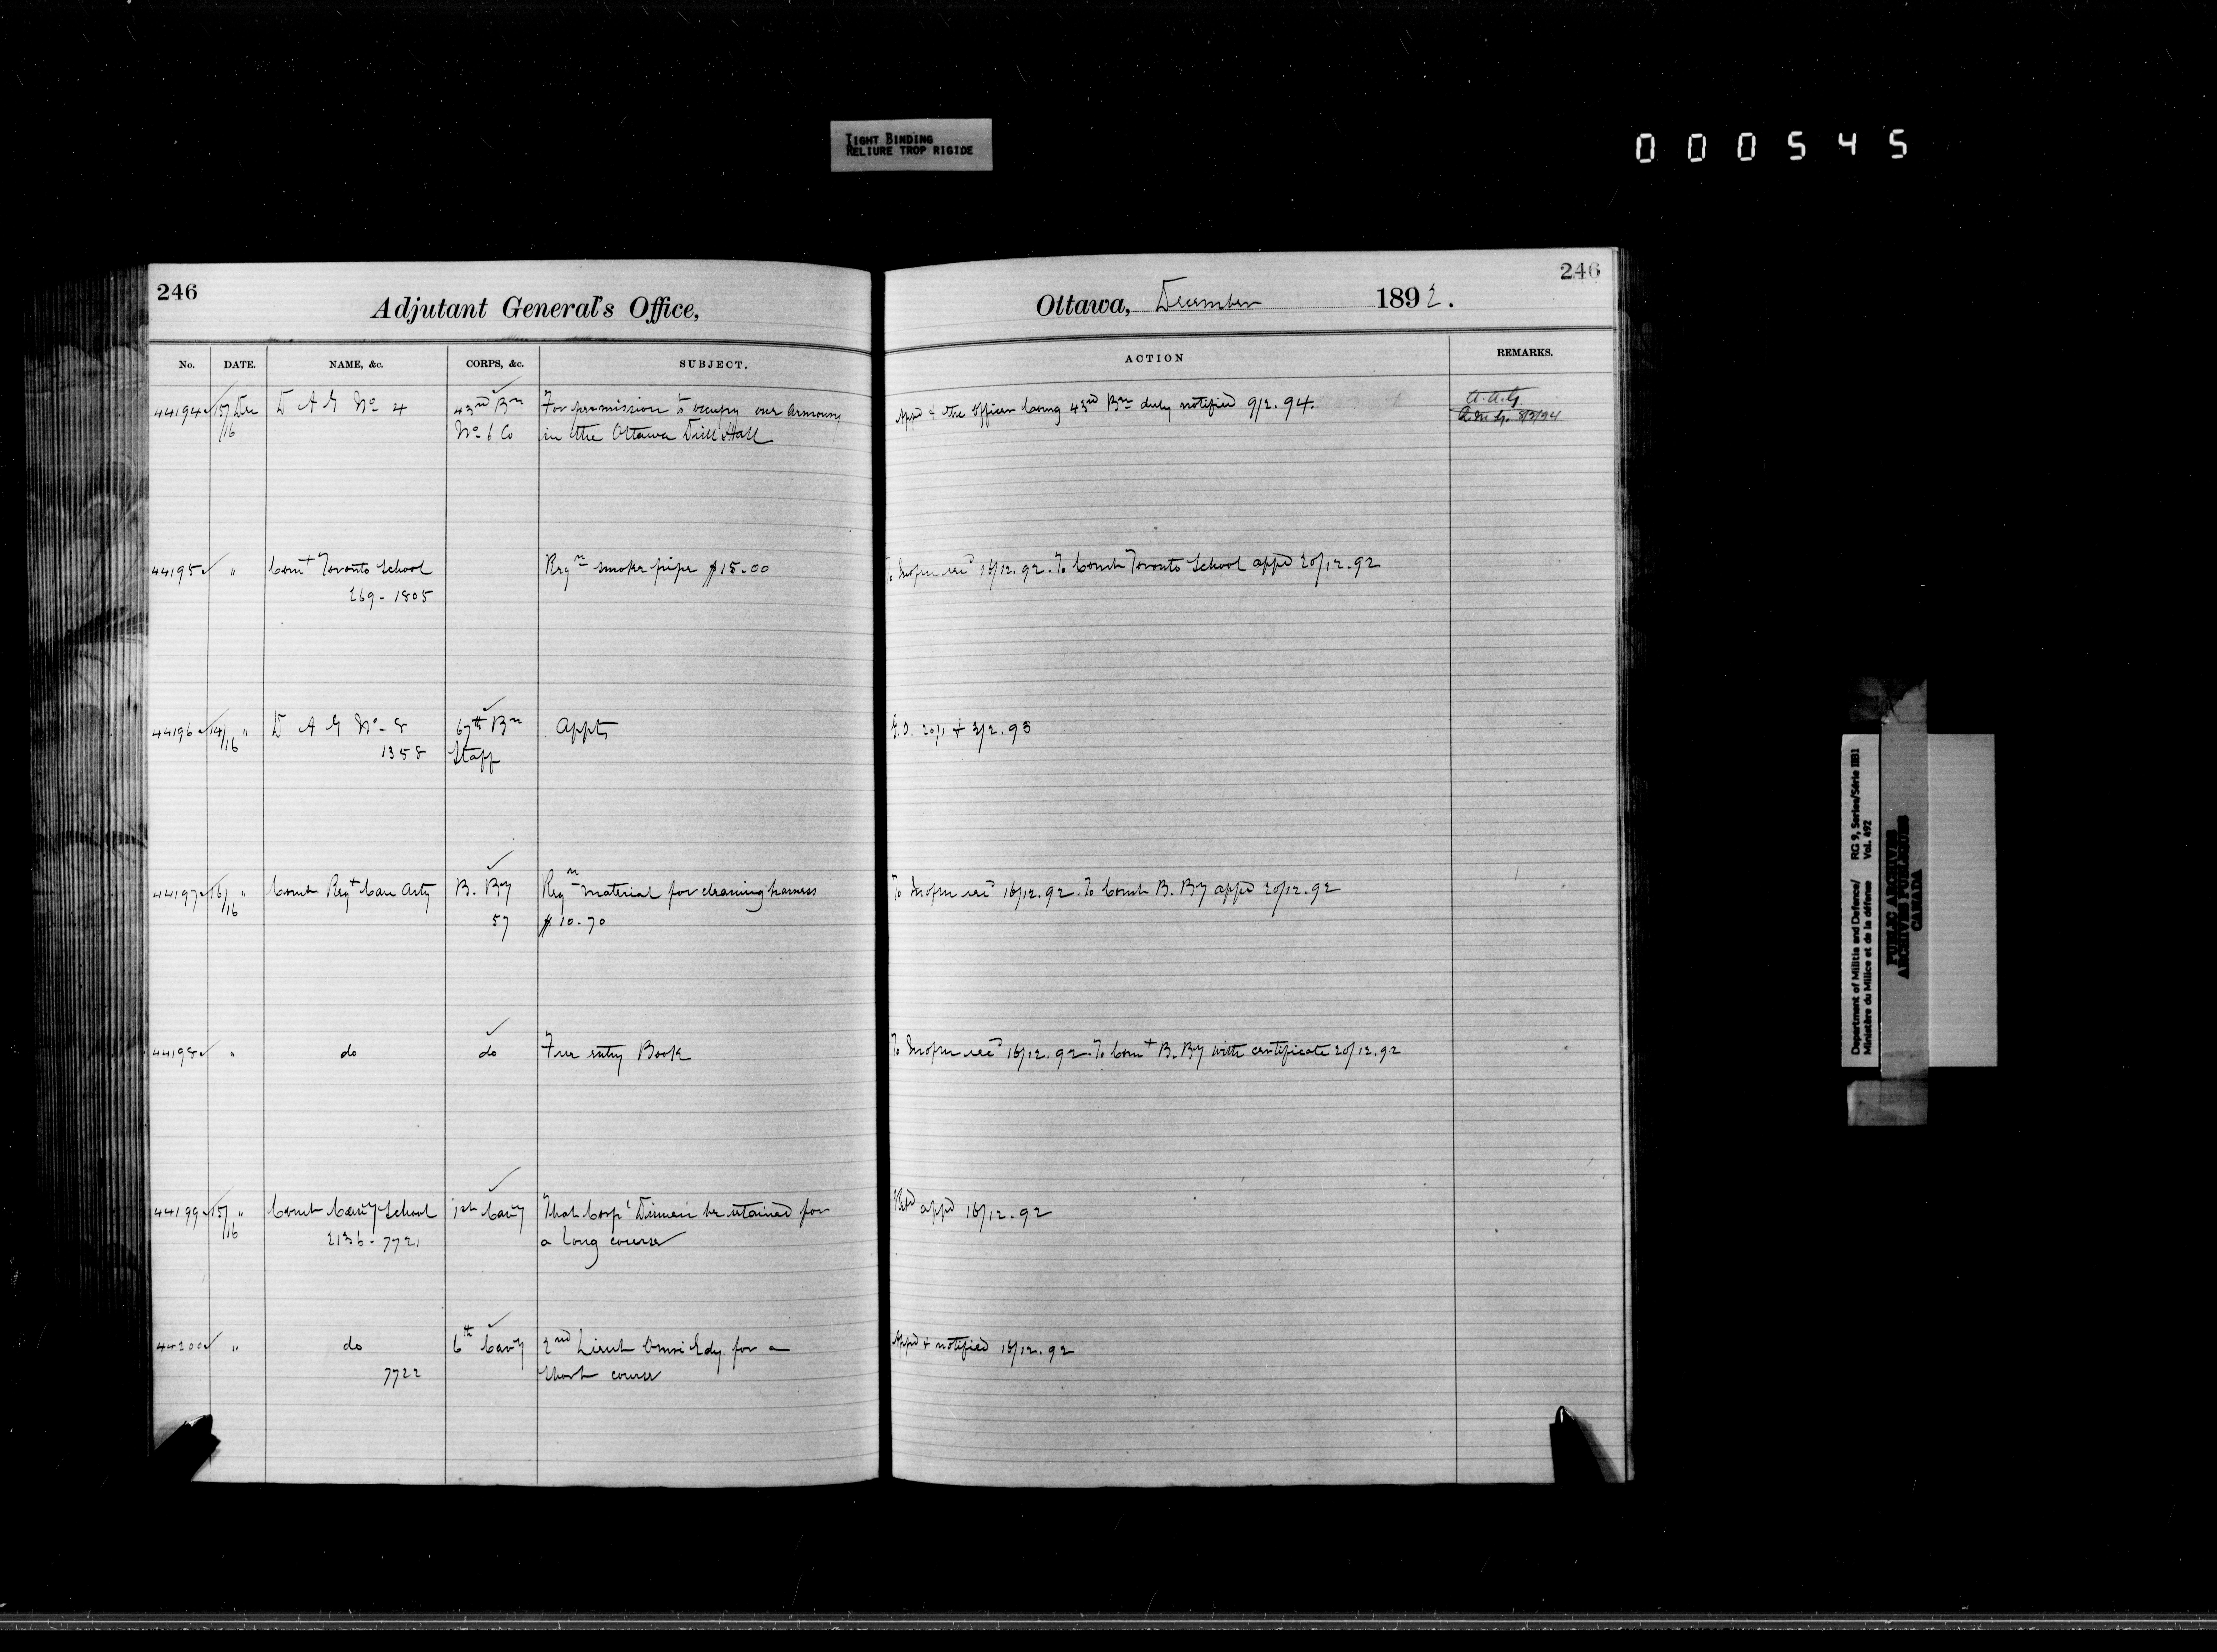 TIGHT BINDING
RELIURE TROP RIGIDE
000545
246
Adjutant General's Office,
Ottawa, December 1892.
246
No. DATE. NAME, &c. CORPS, &c. SUBJECT. ACTION REMARKS.
44194 15/16 Dec D A G No 4 43rd Bn No 6 Co For permission to occupy one armoury
in the Ottawa Drill Hall
Appd & the officer comg 43rd Bn duly notified 9/2.94.
A.A.G.
44195 " Comt Toronto School
269-1805
Reqn smoke pipe $15.00
To recd 16/12.92. To Comdt Toronto School appd 20/12.92
44196 14/16 " D A G No 8
1358
67th Bn
Staff
Appts
G.O. 20/1 + 3/2.93
44197 16/16 " Comdt Regt Can Arty B. By
57
Reqn material for cleaning harness
$10.70
To recd 16/12.92. To Comdt B. By appd 20/12.92
44198 " do do Free entry Book
To recd 16/12.92. To Comt B. By with certificate 20/12.92
44199 15/16 " Comdt Cavy School
2136-7721
1st Cavy
That Corpl be retained for
a long course
Retd appd 16/12.92
44200 " do
7722
6th Cavy
2nd Lieut for a
short course
Appd & notified 16/12.92
Department of Militia and Defence/
Ministère du Milice et de la défense
RG 9, Series/Série IIB1
Vol. 492
PUBLIC ARCHIVES
ARCHIVES PUBLIQUES
CANADA